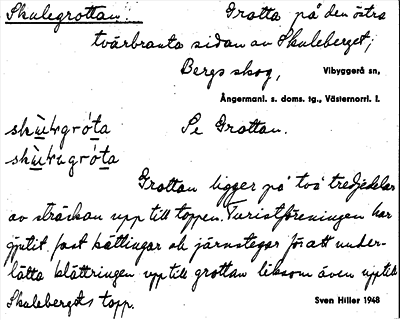 Skulegrottan. Grotta på den östra
tvärbranta sidan av Skuleberget;
Bergs skog, Vibyggerå sn,
Ångermanl. s. doms. tg., Västernorrl. l.
skùlgróta Se Grottan.
skùlugróta
Grottan ligger på två tredjedelar
av sträckan upp till toppen. Turistföreningen har
gjutit fast kättingar och järnstegar för att under-
lätta klättringen upp till grottan liksom även upptill
Skulebergets topp. Sven Hiller 1948